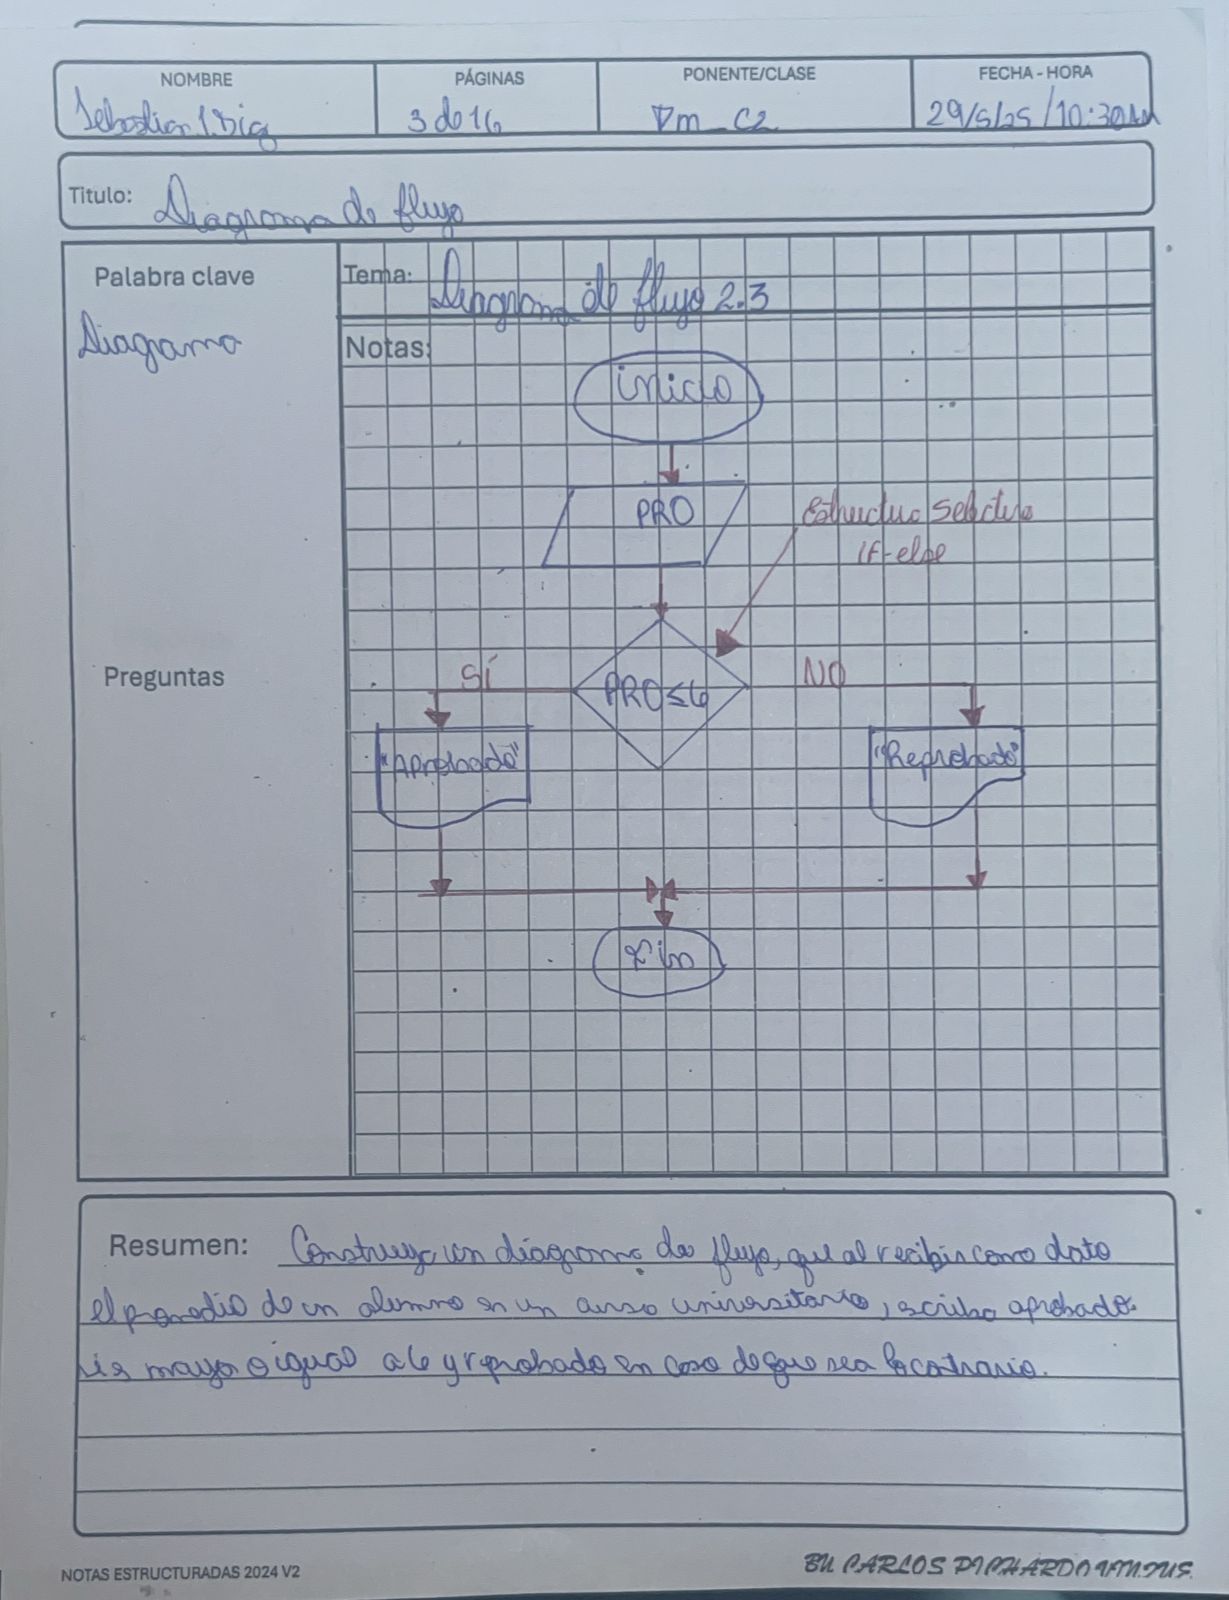 NOMBRE
PÁGINAS
PONENTE/CLASE
FECHA - HORA
3 de 16
C2
29/5/25 / 10:30AM
Titulo: Diagrama de flujo
Palabra clave
Tema: Diagrama de flujo 2.3
Diagrama
Notas:
inicio
PRO
Estructura Selectiva
IF-else
SÍ
NO
Preguntas
PRO≤6
"Aprobado"
"Reprobado"
Fin
Resumen: Construya un diagrama de flujo, que al recibir como dato
el promedio de un alumno en un curso universitario, escriba aprobado
si es mayor o igual a 6 y reprobado en caso de que sea lo contrario.
NOTAS ESTRUCTURADAS 2024 V2